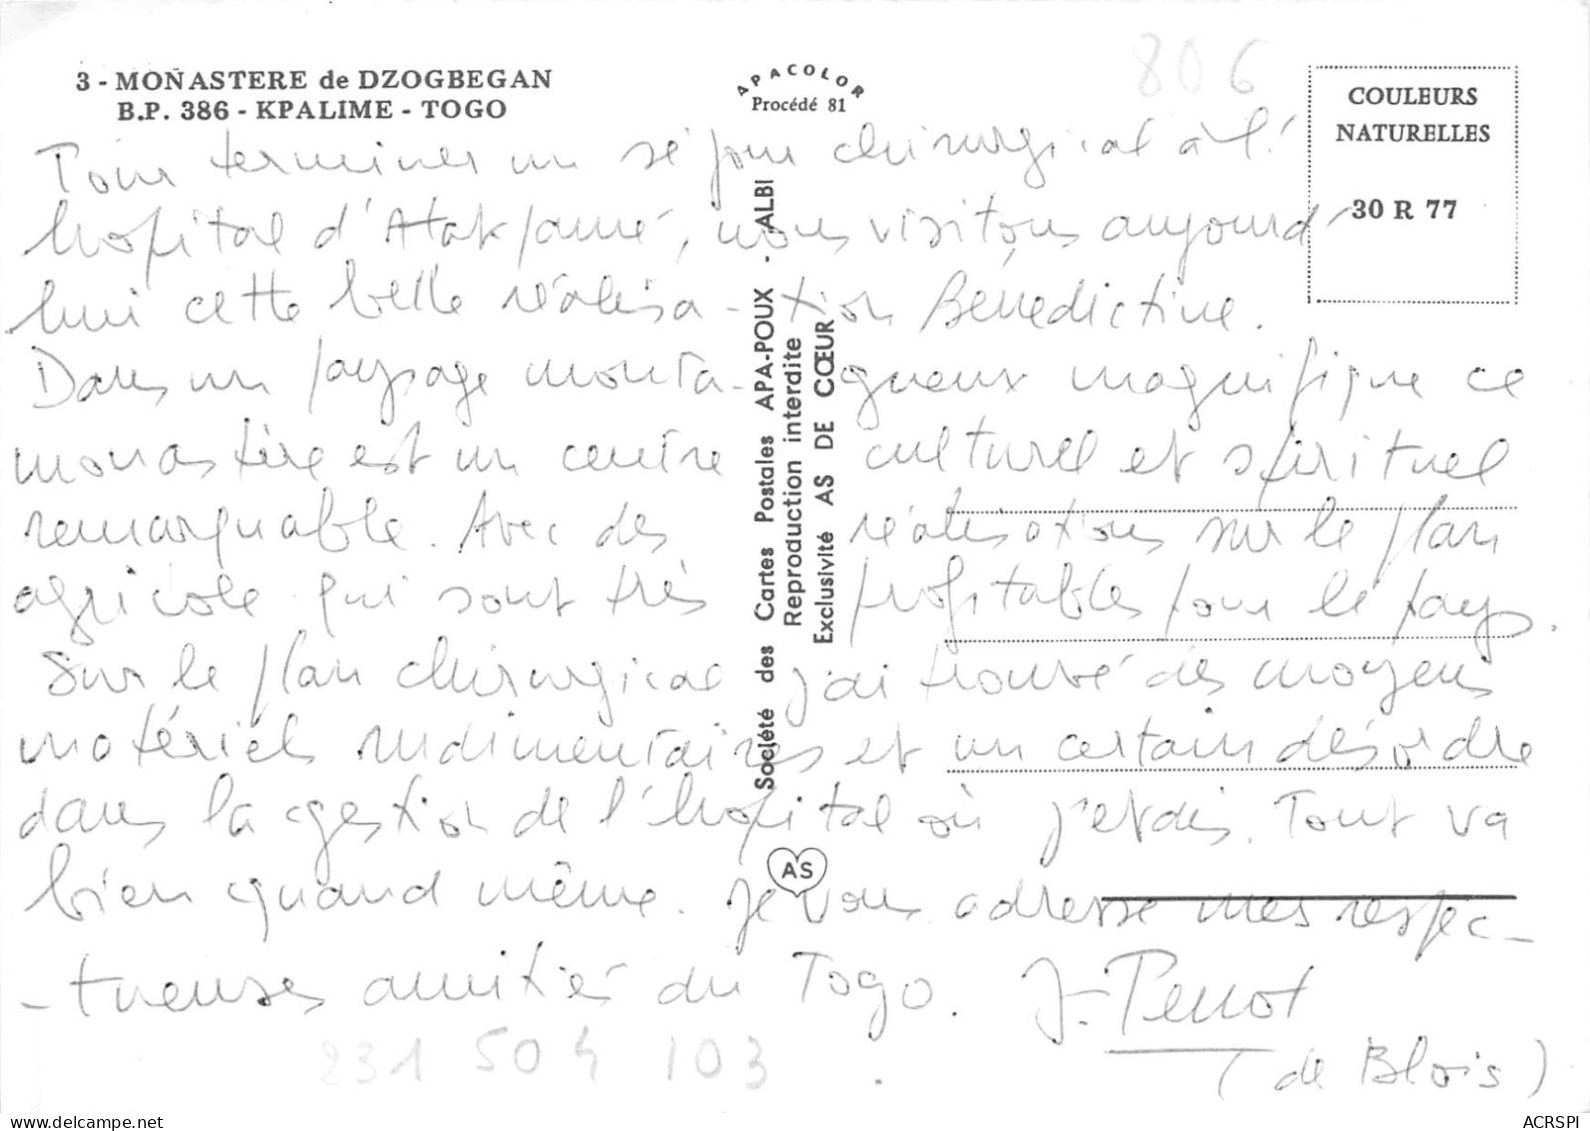 3 - MONASTERE de DZOGBEGAN
B.P. 386 - KPALIME - TOGO
APACOLOR
Procédé 81
806
COULEURS
NATURELLES
30 R 77
Pour terminer un séjour chirurgical à l'
hôpital d'Atakpamé, nous visitons aujourd'
hui cette belle réalisa-tion Bénédictine.
Dans un paysage monta-gneux magnifique ce
monastère est un centre culturel et spirituel
remarquable. Avec des réalisations sur le plan
agricole qui sont très profitables pour le pays.
Sur le plan chirurgical j'ai trouvé des moyens
matériels rudimentaires et un certain désordre
dans la gestion de l'hôpital où j'étais. Tout va
bien quand même. Je vous adresse mes respec-
-tueuses amitiés du Togo. J. Perrot
(de Blois)
Société des Cartes Postales APA-POUX - ALBI
Reproduction interdite
Exclusivité AS DE CŒUR
AS
231 504 103
ACRSPI